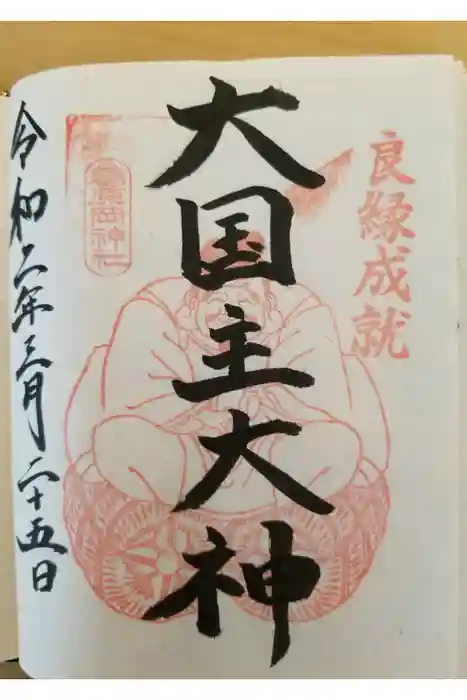 良縁成就
大国主大神
令和二年三月二十五日